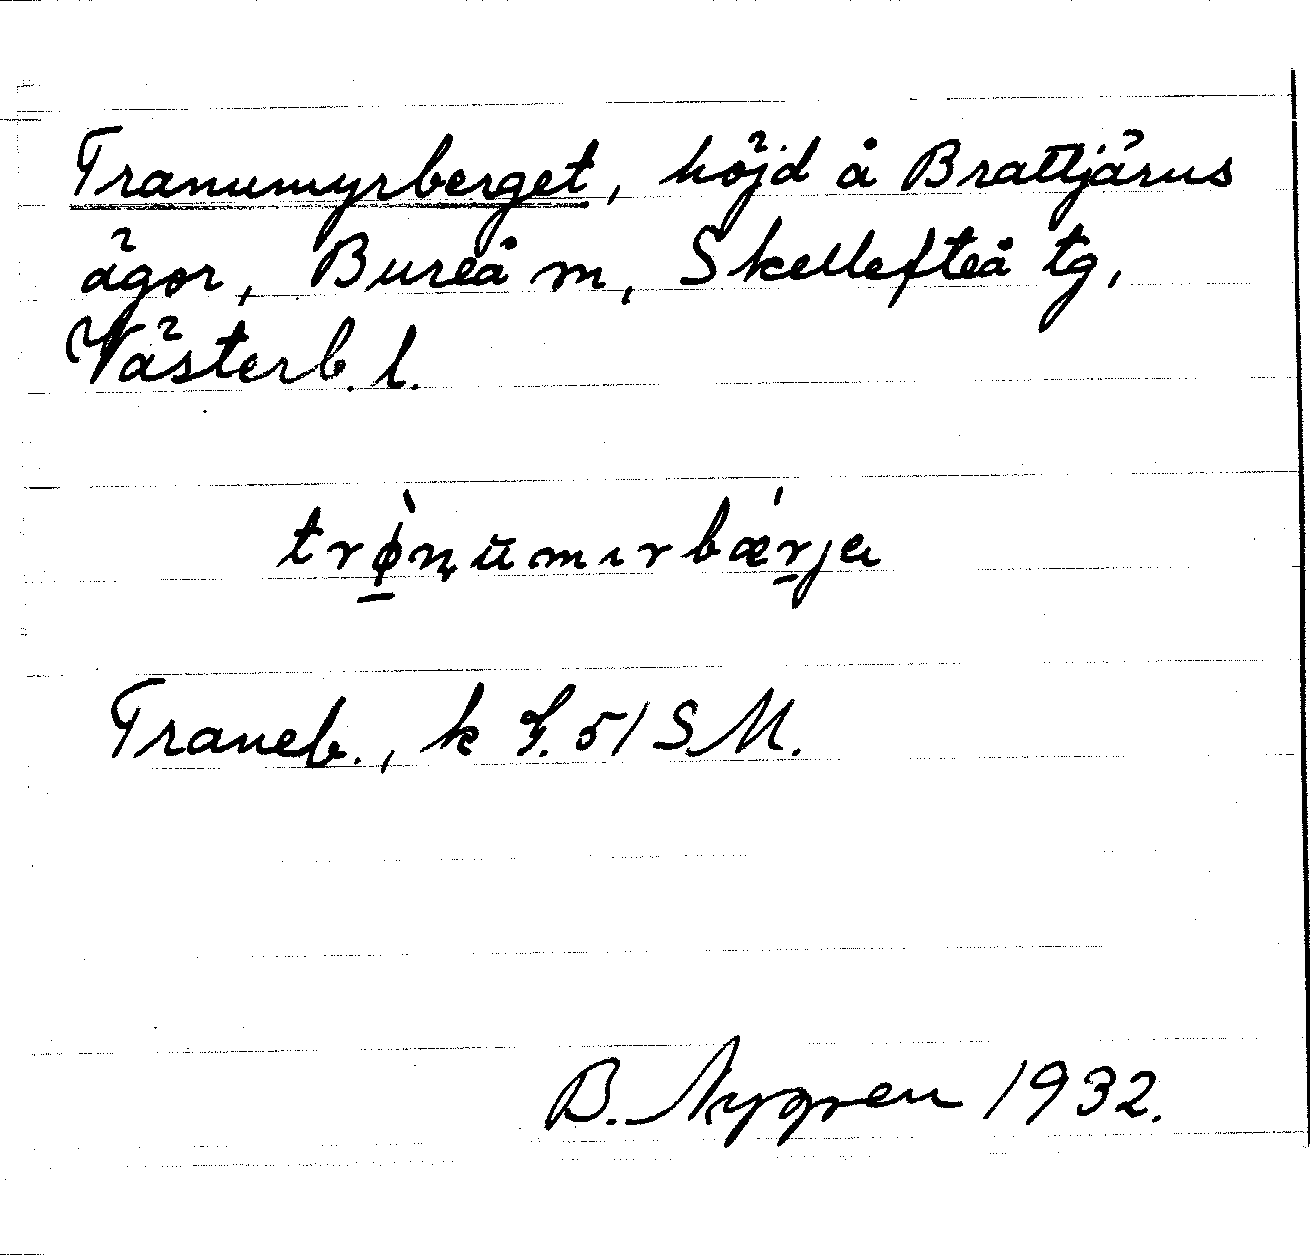 Tranumyrberget, höjd å Brattjärns
ägor, Bureå m, Skellefteå tg,
Västerb. l.
Traneb., k G. 51 SM.
B. Nygren 1932.